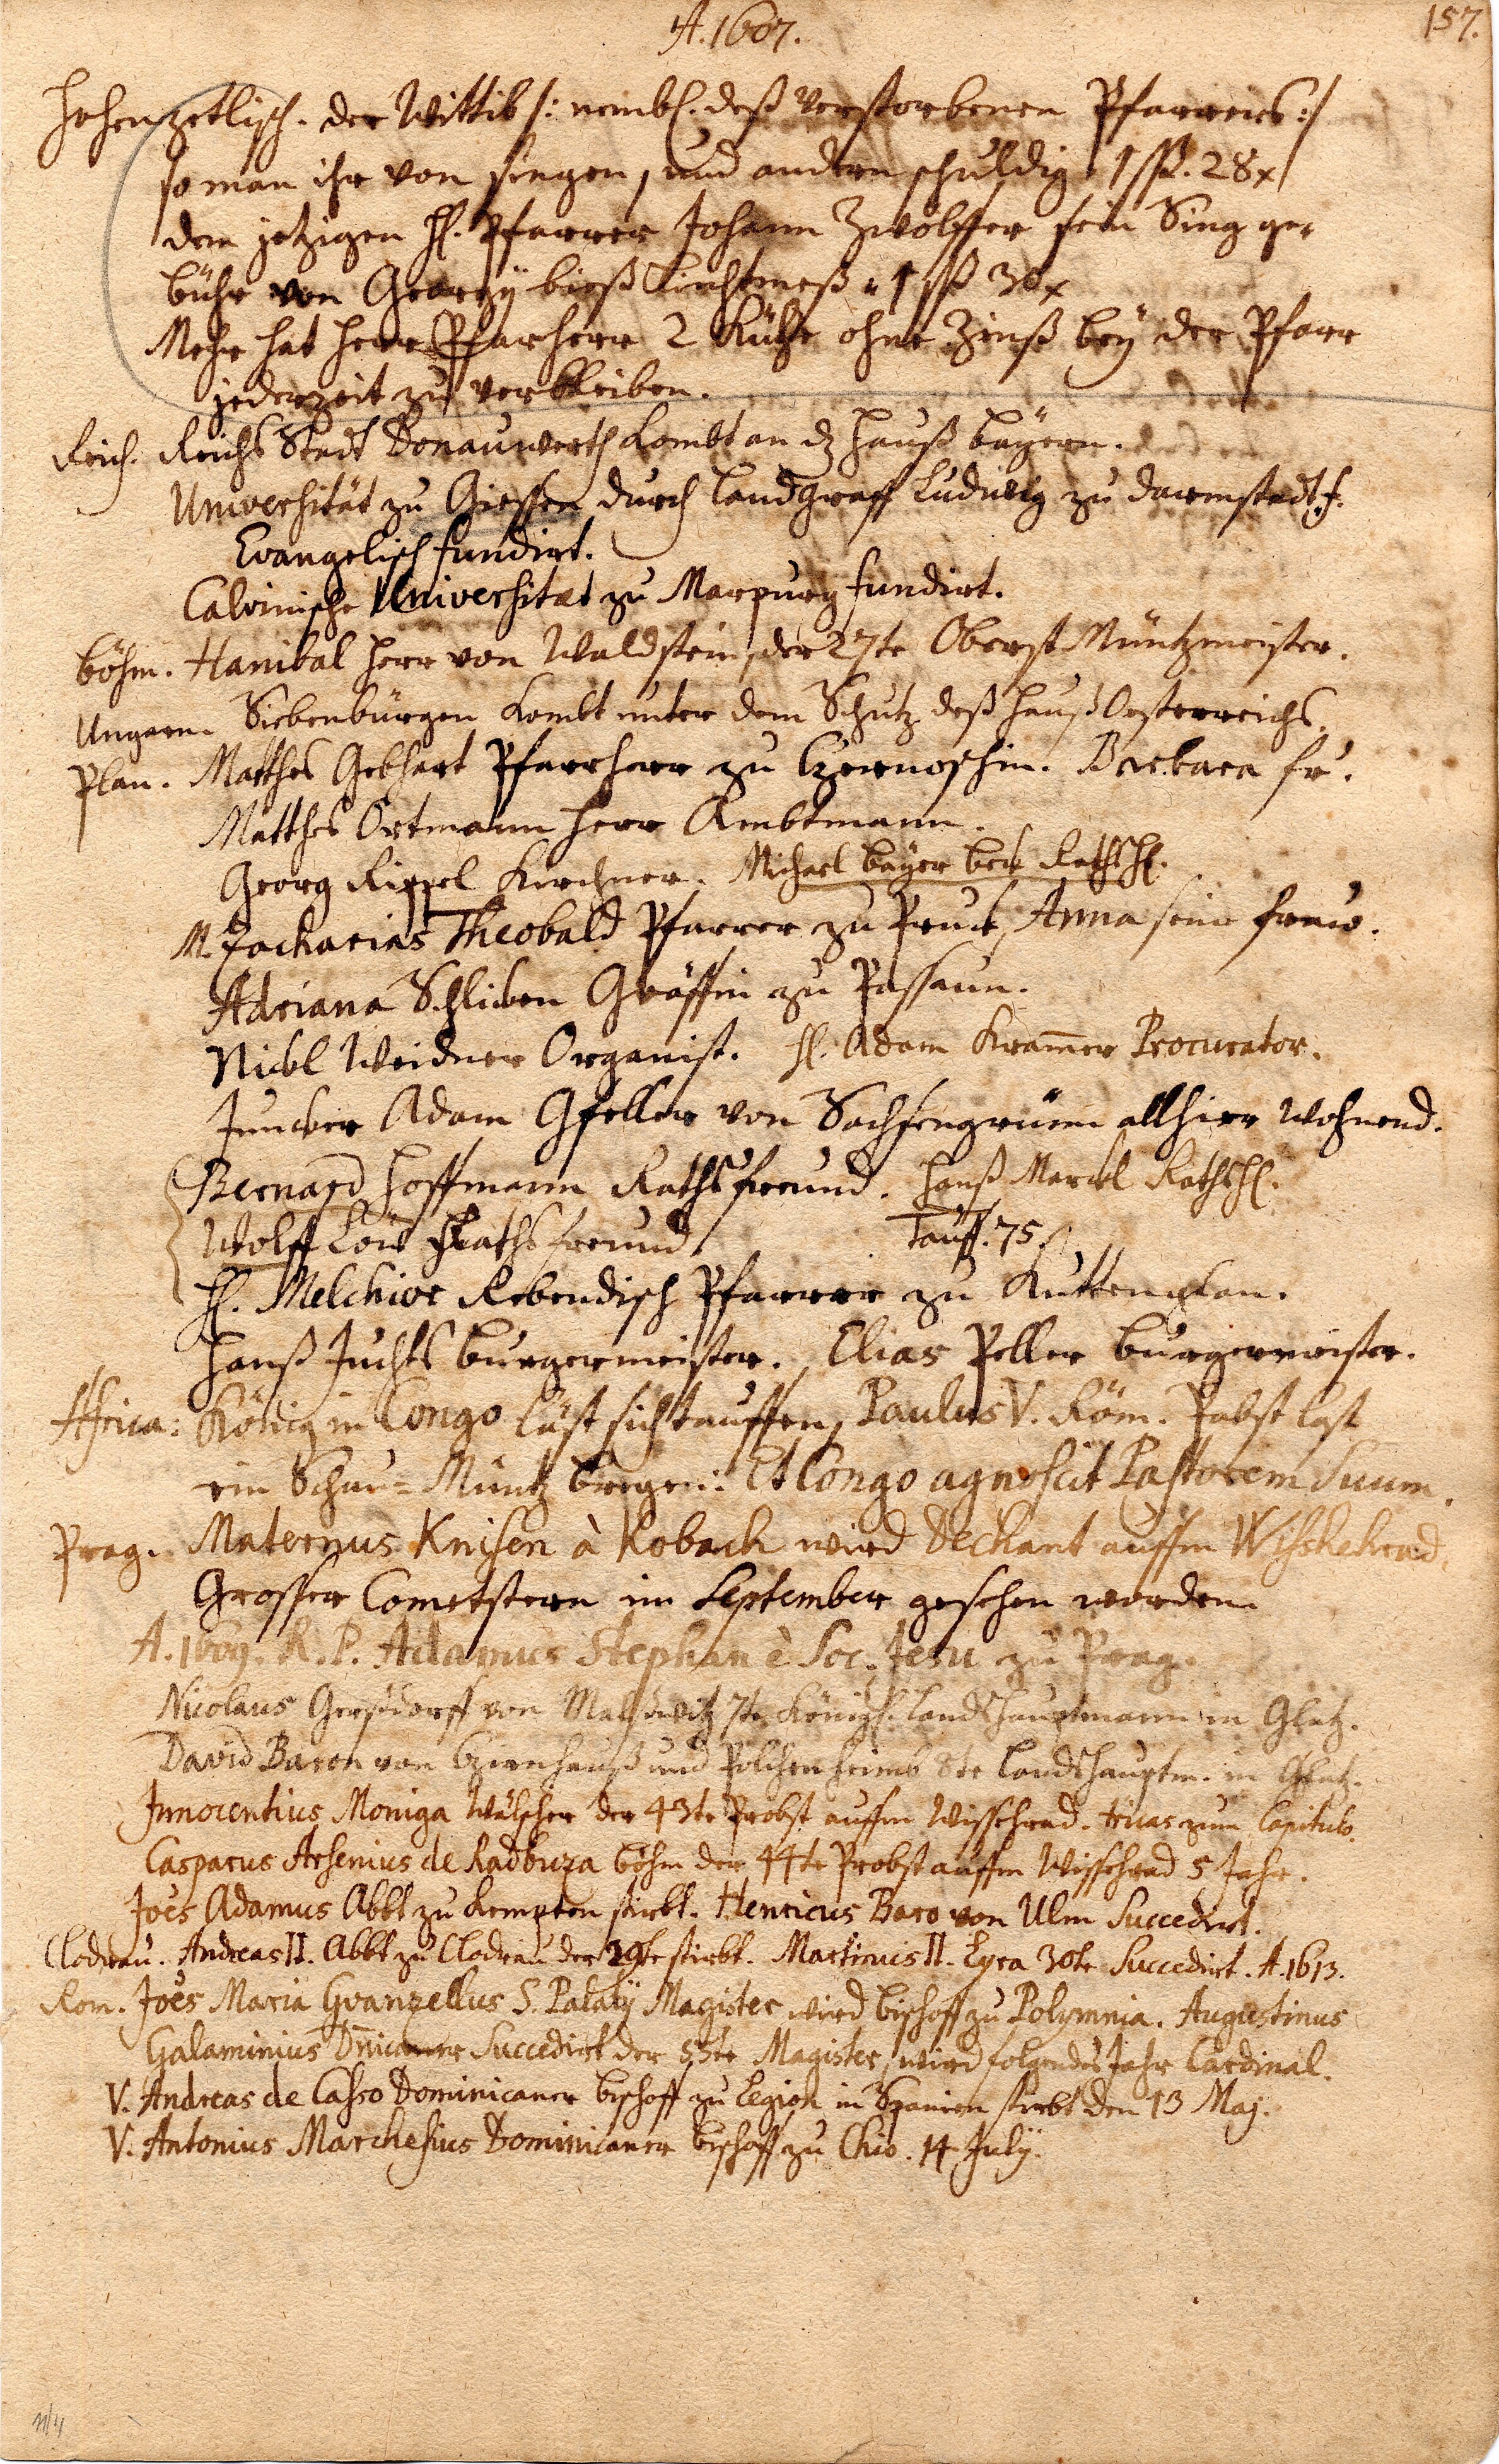 A. 1607.
157.
Hohenzetlisch. der Wittib /: nembl. deß verstorbenen Pfarrers :/
so man ihr von singen, und andern schuldig 1 ſß. 28 x
dem jetzigen H. Pfarrer Johann Zwölffer sein Sing ge-
bühr von Georgy bieß Liechtmeß 1 ſß 30 x
Mehr hat Herr Pfarherr 2 Kühe ohne Zinß bey der Pfarr
jederzeit zu verbleiben.
Reich. Reichs Stadt Donauwerth kombt an dz Hauß Bayern.
Universität zu Giessen durch Landgraff Ludwig zu Darmstadt
Evangelisch fundirt.
Calvinische Universitæt zu Marpurg fundirt.
Böhm. Hanibal Herr von Waldstein, der 27te Oberst Müntzmeister.
Ungarn. Siebenbürgen kombt unter dem Schutz deß Hauß Oesterreichs.
Plan. Matthes Gebhart Pfarrherr zu Czernoschin. Barbara fr.
Matthes Ortmann Herr Ambtmann.
Georg Rippel Kirchner. Michael Bayer Beck Rathsh.
M. Zacharias Theobald Pfarrer zu Pruck, Anna seine fraw.
Adriana Schlicken Gräffin zu Passaun.
Nickl Weidner Organist. H. Adam Kram̄er Procurator.
Juncker Adam Gfeller von Sachsengrüen allhier wohnend.
Bernard Hoffmann Rathsfreund. Hanß Marckl Rathsh.
Wolff Löw Rathsfreund Tauff. 75.
H. Melchior Rebendisch Pfarrer zu Kuttenplan.
Hanß Juchts Burgermeister. Elias Peller Burgermeister.
Africa: König in Congo läst sich tauffen, Paulus V. Röm. Pabst last
ein Schau-Müntz bregen: Et Congo agnoscit Pastorem Suum.
Prag. Maternus Knisen à Kobach wird Dechant auffm Wissehrad.
Grosser Cometstern im September gesehen worden.
A. 1607. R. P. Adamus Stephan è Soc. Jesu zu Prag.
Nicolaus Gersdorff von Malschwitz 7te Königl. Landshauptmann in Glatz.
David Baron von Czirnhauß und Polchenheimb 8te Landshauptm. in Glatz.
Innocentius Moniga Wälscher der 43te Probst auffm Wissehrad. etwas zum Capitulo.
Casparus Arsenius de Radbuza Böhm der 44te Probst auffm Wissehrad 5 Jahr.
Joēs Adamus Abbt zu Kempten stirbt. Henricus Baro von Ulm Succedirt.
Clodrau. Andreas II. Abbt zu Clodrau der 29te stirbt. Martinus II. Lyra 30te Succedirt. A. 1613.
Rom. Joēs Maria Guanzellus S. Palatÿ Magister wird Bischoff zu Polymnia. Augustinus
Galaminius Dn̄icaner Succedirt der 55te Magister, wird folgendes Jahr Cardinal.
V. Andreas de Casso Dominicaner Bischoff zu Legion in Spanien stirbt den 13 Maj.
V. Antonius Marchesius Dominicaner Bischoff zu Chio. 14 Julÿ.